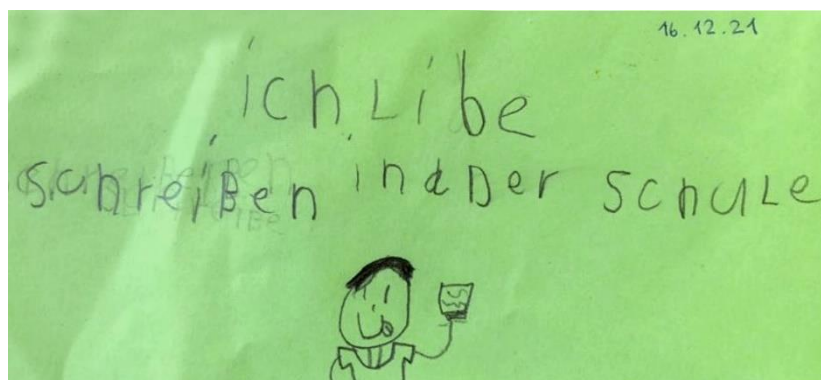 16.12.21
ich Libe
schreiBen indDer schuLe